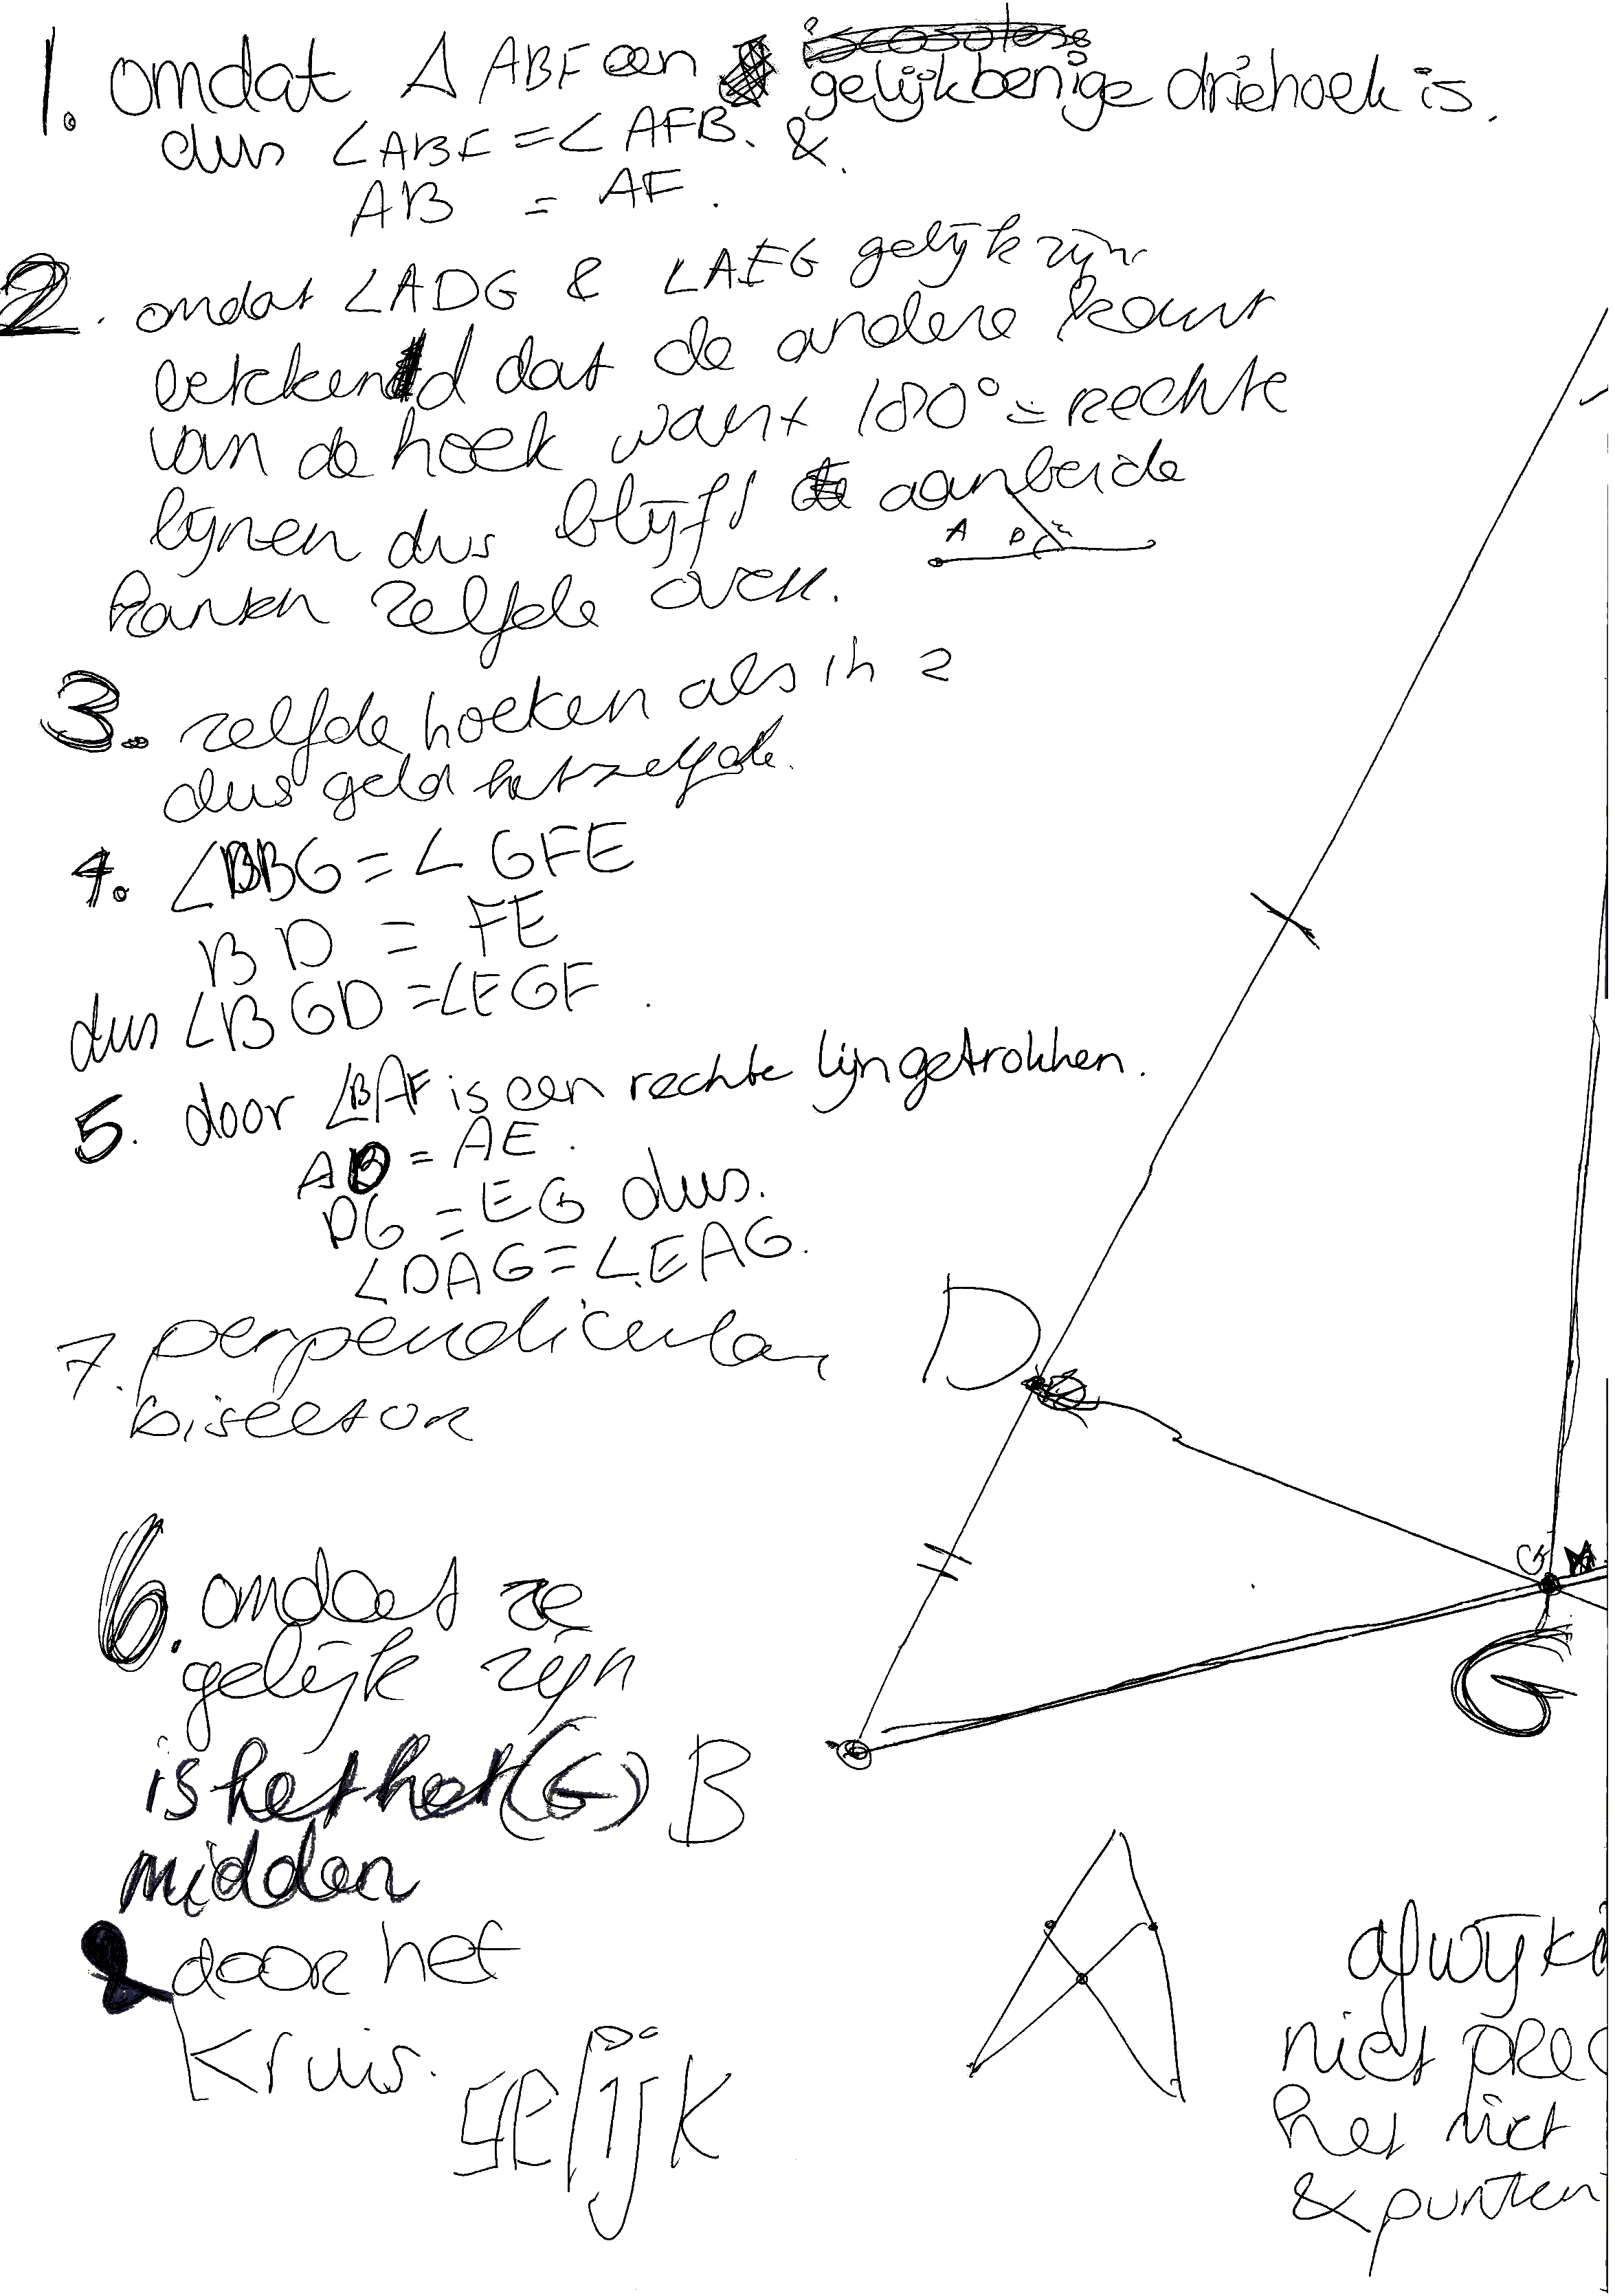 1. omdat △ ABF een gelijkbenige driehoek is.
dus ∠ABF = ∠AFB. &
AB = AF.
2. omdat ∠ADG & ∠AEG gelijk zijn
betekend dat de andere kant
van de hoek want 180° = rechte
lijnen dus blijft aan beide
A D
kanten zelfde over.
3. zelfde hoeken als in 2
dus geld hetzelfde.
4. ∠DBG = ∠GFE
BD = FE
dus ∠BGD = ∠EGF.
5. door ∠BAF is een rechte lijn getrokken.
AD = AE.
DG = EG dus.
∠DAG = ∠EAG.
7. perpendicular
bisector
D
G
G
6. omdat ze
gelijk zijn
is het het (G)
midden
& door het
kruis.
gelijk
B
afwijki
niet prec
het niet
& punten